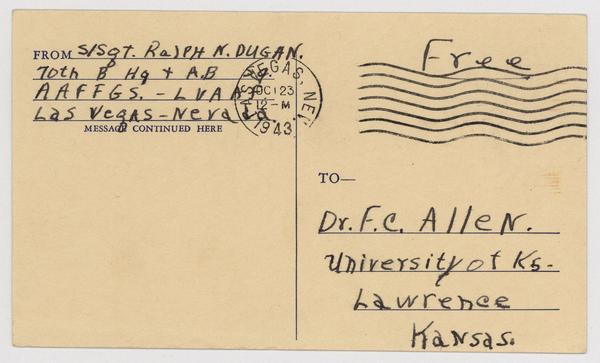 FROM S/Sgt. Ralph N. DUGAN.
70th B Hq + A.B Sq.
AAFFGS. - LVAAF.
Las Vegas - Nevada.
MESSAGE CONTINUED HERE
LAS VEGAS, NEV.
OCT 23
12 - M
1943
Free
TO—
Dr. F.C. Allen.
University of Ks.
Lawrence
Kansas.